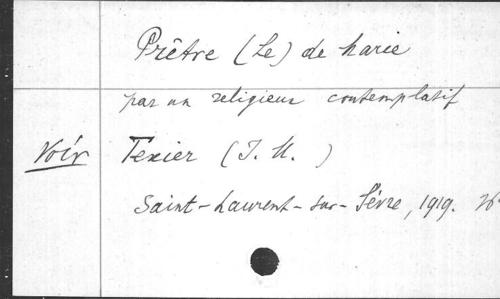 Prêtre (Le) de Marie
par un religieux contemplatif
Voir Texier (J. M. )
Saint-Laurent-sur-Sèvre, 1919.